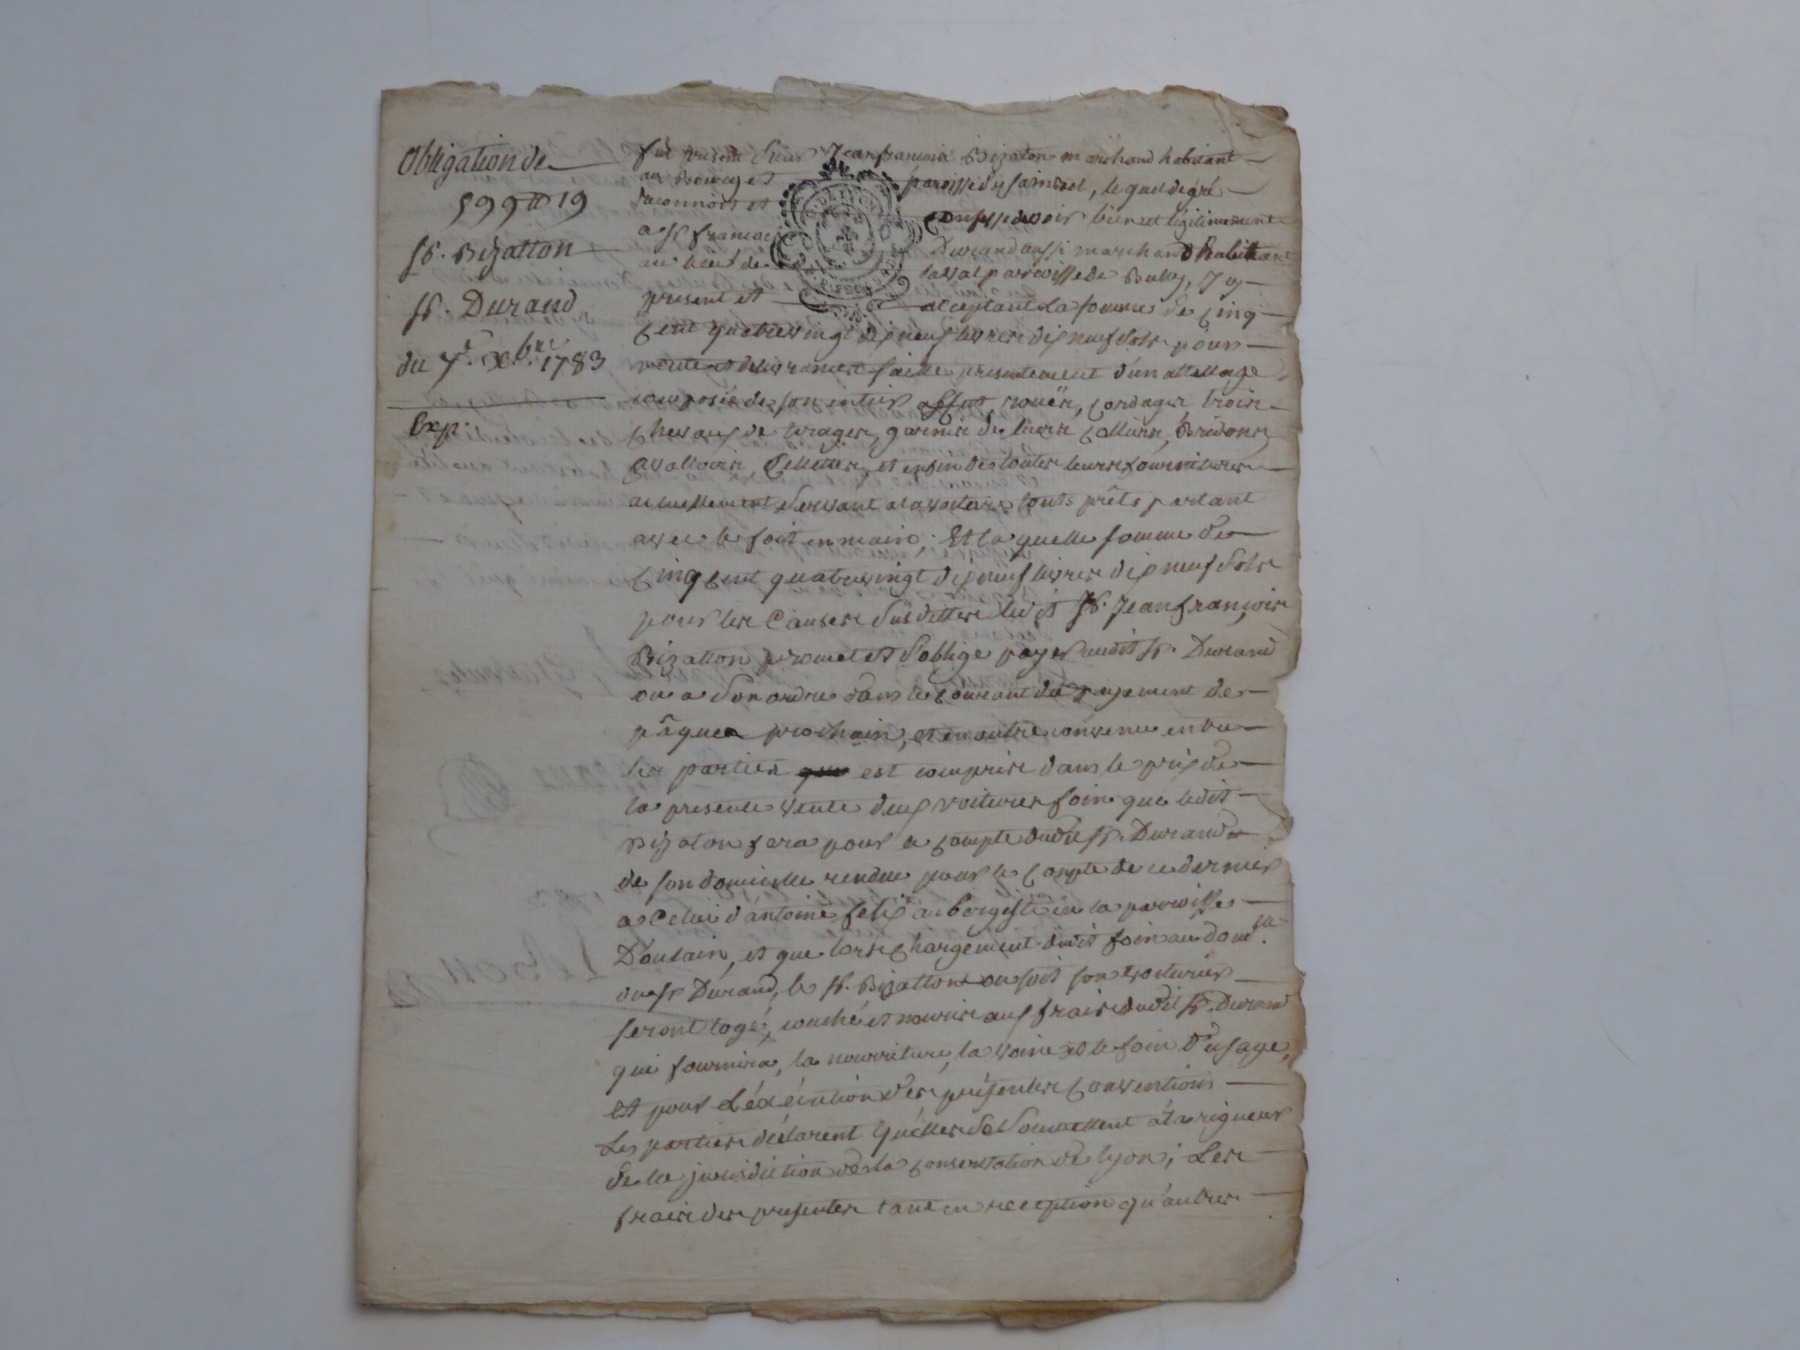 Obligation de
599 ₶ 19
Sr. Bizatton
Sr. Durand
du 7e. Xbre. 1783
Exp.
fut présent Sieur Jean françois Bizaton marchand habitant
au Bourg et paroisse de sainbel, lequel de gré
reconnoit et confesse devoir bien et légitimement
a Sr françois Durand aussi marchand habitant
au lieu de laval parroisse de Bully, Icy
present et acceptant La somme de Cinq
Cent quatrevingt dix neuf livres dix neuf sols pour
vente et délivrance faitte présentement d'un attellage
composé de son entier affut, rouës, Cordages trois
Chevaux de tirages, garnis de leurs Colliers, Bridons,
avalloires, sellettes, et enfin de toutes leurs fournitures
actuellement servant a la voiture touts prêts partant
avec le foit en main; Et la quelle somme de
Cinq Cent quatrevingt dix neuf livres dix neuf sols
pour les Causes susdittes ledit Sr. Jean françois
Bizatton promet et s'oblige payer audit Sr. Durand
ou a son ordre dans le Courant du payement de
pâques prochain, et en outre convenu entre
les parties est comprise dans le prix de
la presente vente deux voitures foin que ledit
Bizaton fera pour le Compte dudit Sr. Durand
de son domicille rendue pour le Compte de ce dernier
a Celui d'antoine felix aubergiste en la parroisse
D'oulain, et que lors Chargement dudit foin au domlle.
du Sr Durand, le Sr. Bizatton ou soit son voiturier
seront logé, couché et nourris aux frais dudit Sr. Durand
qui fournira, la nourriture, la voine et le foin d'usage,
Et pour L'éxécution des présentes Conventions
Les parties déclarent qu'elles se soumettent a la rigueur
de la jurisdiction de la Conservation de Lyon; Les
frais des presentes tant en reception qu'autres